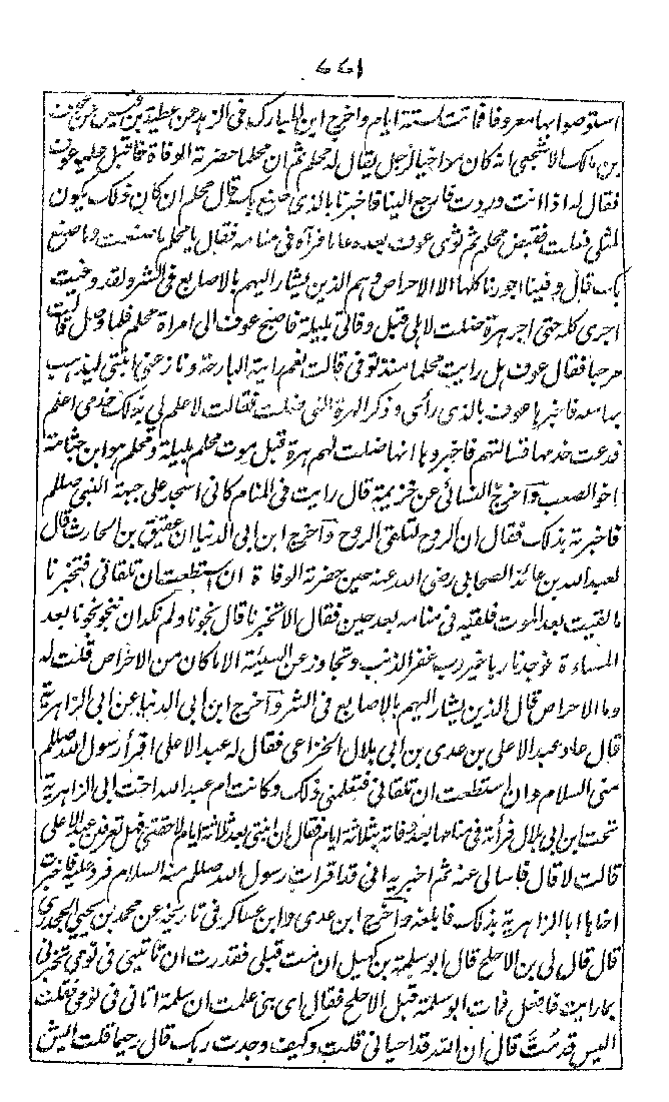 ٤٤١
استوصوا بها معروفا فماتت لستة ايام واخرج ابن المبارك فى الزهد عن عطية بن قيس عن عوف
بن مالك الاشجعى انه كان مواخيا لرجل يقال له محلم ثم ان محلما حضرته الوفاة فاقبل عليه عوف
فقال له اذا انت وردت فارجع الينا فاخبرنا بالذى صنع بك قال محلم ان كان ذلك يكون
لمثلى فعلت فقبض محلم ثم ثوى عوف بعده عاما فرآه فى منامه فقال يا محلم ما صنعت وما صنع
بك قال وفينا اجورنا كلها الا الاحراص وهم الذين يشار اليهم بالاصابع فى الشر ولقد وفيت
اجرى كله حتى اجر هرة ضلت لاهلى قبل وفاتى بليلة فاصبح عوف الى امراة محلم فلما دخل قالت
مرحبا فقال عوف هل رايت محلما منذ توفى قالت نعم رايته البارحة ونازعنى ابنتى ليذهب
بها معه فاخبرها عوف بالذى رأى وذكر الهرة التى ضلت فقالت لا علم لى بذلك خدمى اعلم
فدعت خدمها فسالتهم فاخبروها انها ضلت لهم هرة قبل موت محلم بليلة ومحلم هو ابن جثامة
اخو الصعب واخرج النسائى عن خزيمة قال رايت فى المنام كانى اسجد على جبهة النبى صللم
فاخبرته بذلك فقال ان الروح لتلقى الروح واخرج ابن ابى الدنيا ان عفيف بن الحارث قال
لعبد الله بن عائذ الصحابى رضى الله عنه حين حضرته الوفاة ان استطعت ان تلقانى فتخبرنا
ما لقيت بعد الموت فلقيه فى منامه بعد حين فقال الا تخبرنا قال نجونا ولم نكد ان ننجو نجونا بعد
المشاءة فوجدنا ربا خير رب غفر الذنب وتجاوز عن السيئة الا ما كان من الاحراص قلت له
وما الاحراص قال الذين يشار اليهم بالاصابع فى الشر واخرج ابن ابى الدنيا عن ابى الزاهرية
قال عاد عبد الاعلى بن عدى بن ابى بلال الخزاعى فقال له عبد الاعلى اقرأ رسول الله صللم
منى السلام وان استطعت ان تلقانى فتعلمنى ذلك وكانت ام عبد الله اخت ابى الزاهرية
تحت ابن ابى بلال فرأته فى منامها بعد وفاته بثلاثة ايام فقال ان ابنتى بعد ثلاثة ايام لاحقتى فهل تعرفين عبد الاعلى
قالت لا قال فاسالى عنه ثم اخبريه انى قد اقرات رسول الله صللم منه السلام فرد عليه فاخبرت
اخاها ابا الزاهرية بذلك فابلغه واخرج ابن عدى وابن عساكر فى تاريخه عن محمد بن يحيى الجحدرى
قال قال لى بن الاجلح قال ابو سلمة بن كهيل ان مت قبلى فقدرت ان تاتينى فى نومى تخبرنى
بما رايت فافعل فمات ابو سلمة قبل الاجلح فقال اى بنى علمت ان سلمة اتانى فى نومى فقلت
اليس قد مُتَّ قال ان الله قد احيانى قلت وكيف وجدت ربك قال رحيما قلت ايش